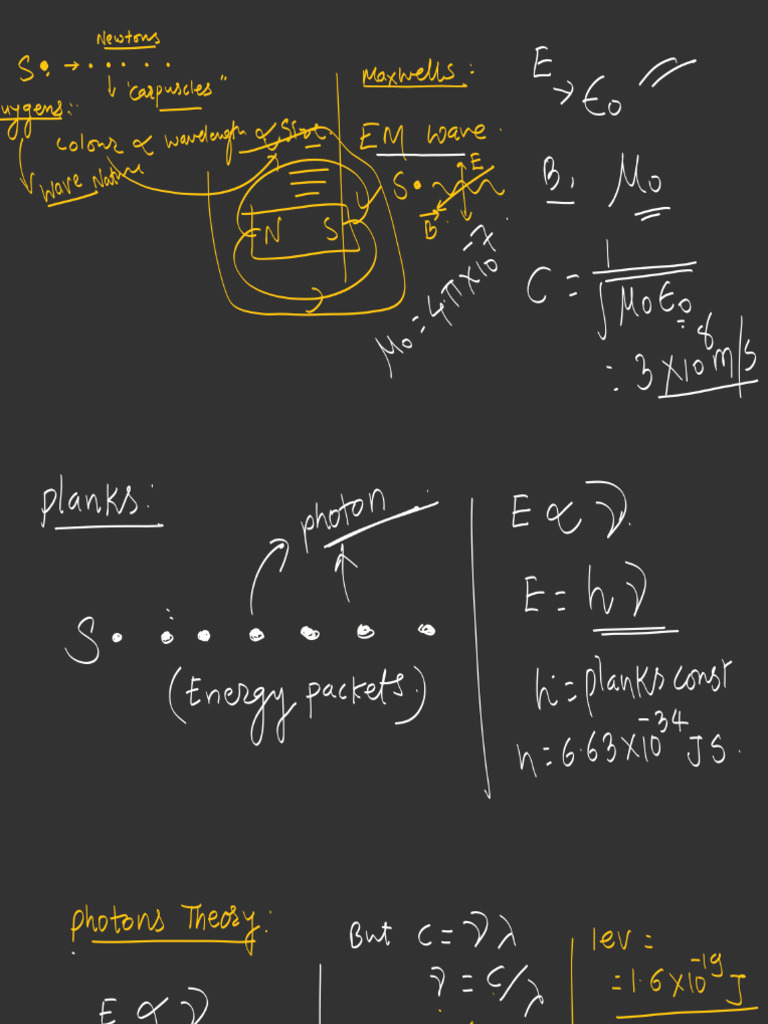 Newtons
S • → • • • • •
↓ "Carpuscles"
uygens:
colour ∝ wavelength ∝ size
Wave Nature
N S
Maxwells:
EM wave
S • E
B
μ₀ = 4π×10⁻⁷
E
→ ε₀
B, μ₀
C = 1/√μ₀ε₀
= 3×10⁸ m/s
planks:
photon
S •
(Energy packets.)
E ∝ ν
E = hν
h = planks const
h = 6.63×10⁻³⁴ JS.
photons Theory:
E ∝ ν
But c = νλ
ν = c/λ
1ev =
= 1.6×10⁻¹⁹ J